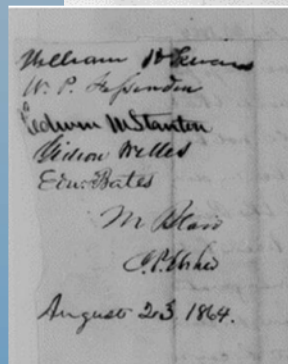 William H Seward
W. P. Fessenden
Edwin M Stanton
Gideon Welles
Edw. Bates
M Blair
J. P. Usher
August 23. 1864.